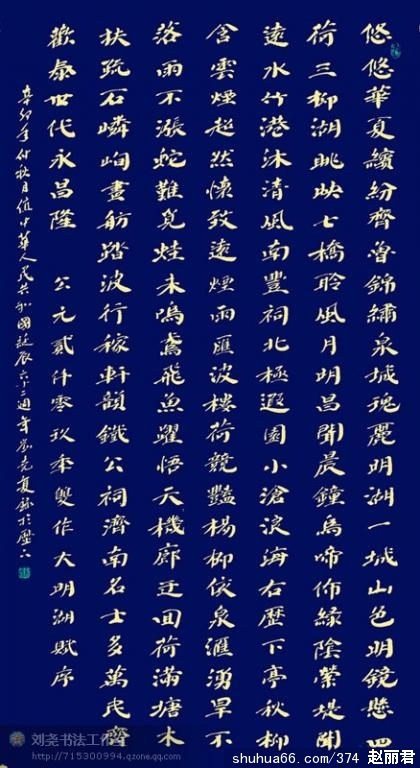 悠悠華夏繽紛齊魯錦繡泉城瑰麗明湖一城山色明鏡悬四
荷三柳湖眺映七橋聆風月明昌聞晨鐘烏啼佈綠陰縈堤閣
遠水竹港沐清風南豐祠北極遐園小滄浪海右歷下亭秋柳
含雲煙超然懷致遠煙雨匯波樓荷競豔楊柳依泉滙湧旱不
落雨不漲蛇難覓蛙未鳴鳶飛魚躍悟天機廊迂回荷滿塘木
扶疏石嶙峋畫舫踏波行稼軒韻鐵公祠濟南名士多萬民齊
歡泰世代永昌隆 公元貳仟零玖年雙作大明湖賦序
辛卯年仲秋月值中華人民共和國誕辰六十二週年劉堯復録於歷下
刘尧书法工作
http://715300994.qzone.qq.com
shuhua66.com/374 赵丽君